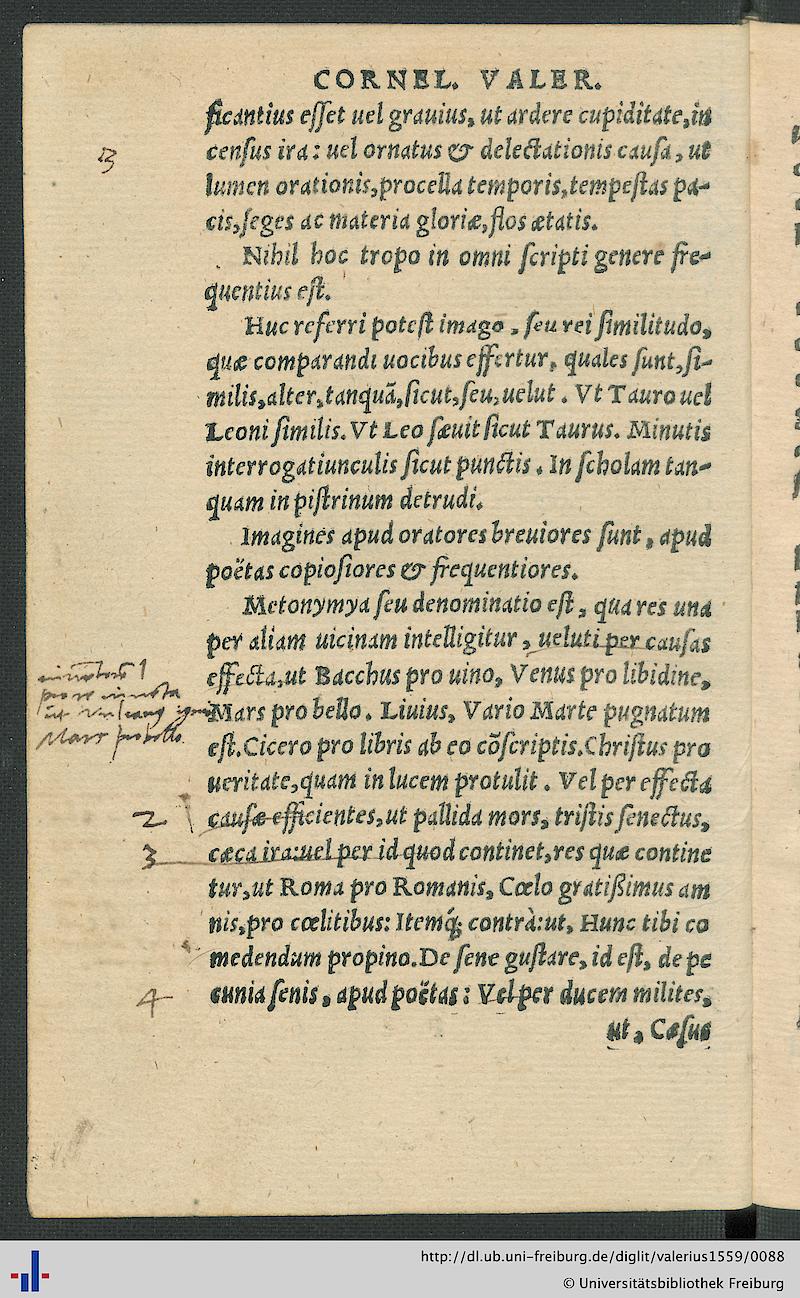 CORNEL. VALER.
ficantius esſet uel grauius, ut ardere cupiditate, in
census ira: uel ornatus & delectationis cauſa, ut
lumen orationis, procella temporis, tempeſtas pa-
cis, ſeges ac materia gloriæ, flos ætatis.
Nihil hoc tropo in omni ſcripti genere fre-
quentius eſt.
Huc referri poteſt imago, ſeu rei ſimilitudo,
quæ comparandi uocibus effertur, quales ſunt, ſi-
milis, alter, tanquã, ſicut, ſeu, uelut. Vt Tauro uel
Leoni ſimilis. Vt Leo ſæuit ſicut Taurus. Minutis
interrogatiunculis ſicut punctis. In ſcholam tan-
quam in piſtrinum detrudi.
Imagines apud oratores breuiores ſunt, apud
poëtas copioſiores & frequentiores.
Metonymya ſeu denominatio eſt, qua res una
per aliam uicinam intelligitur, ueluti per cauſas
effecta, ut Bacchus pro uino, Venus pro libidine,
Mars pro bello. Liuius, Vario Marte pugnatum
eſt. Cicero pro libris ab eo cõſcriptis. Chriſtus pro
ueritate, quam in lucem protulit. Vel per effecta
2
cauſæ efficientes, ut pallida mors, triſtis ſenectus,
3
cæca ira: uel per id quod continet, res quæ contine
tur, ut Roma pro Romanis, Cœlo gratißimus am
nis, pro cœlitibus: Itemq́; contrà: ut, Hunc tibi co
medendum propino. De ſene guſtare, id eſt, de pe
4
cunia ſenis, apud poëtas: Vel per ducem milites,
ut, Cæſus
Mars pro bello
http://dl.ub.uni-freiburg.de/diglit/valerius1559/0088
© Universitätsbibliothek Freiburg